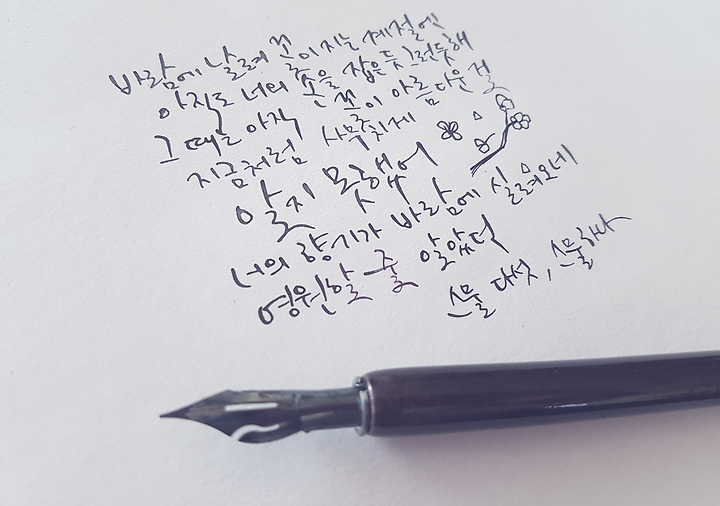 바람에 날려 꽃이 지는 계절엔
아직도 너의 손을 잡은 듯 그런 듯 해
그 때는 아직 꽃이 아름다운 걸
지금처럼 사무치게
알지 못했어
너의 향기가 바람에 실려오네
영원할 줄 알았던
스물 다섯, 스물하나